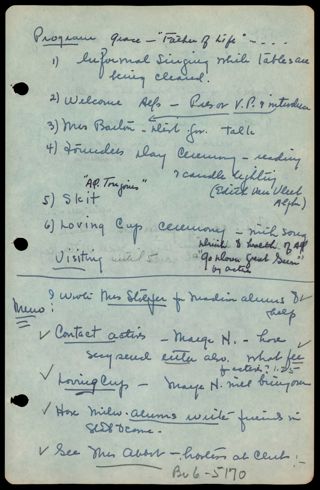 Program Grace - "Father of Life" - - - -
1) Informal Singing while Tables are
being cleared.
2) Welcome Alfs - Pres or V.P. & introduce
3) Mrs Barton - Dist. Gov. talk
4) Founders Day Ceremony - reading
& candle lighting
(Edith Van Vleet
Alpha)
"AP. Tongues"
5) Skit
6) Loving Cup ceremony - with song
drink to health of AP
"Go down Great Seven"
by actives
Visiting until 5
Memo:
? Wrote Mrs for Madison alums to
help
✓ Contact actives - Marge N. - how
many send enter also. What fee
1.25
✓ Loving Cup - Marge N. will bring one
✓ Have Milw. alums write friends in
State to come.
✓ See Mrs Abbot - hostess at Club :-
Br 6-5170